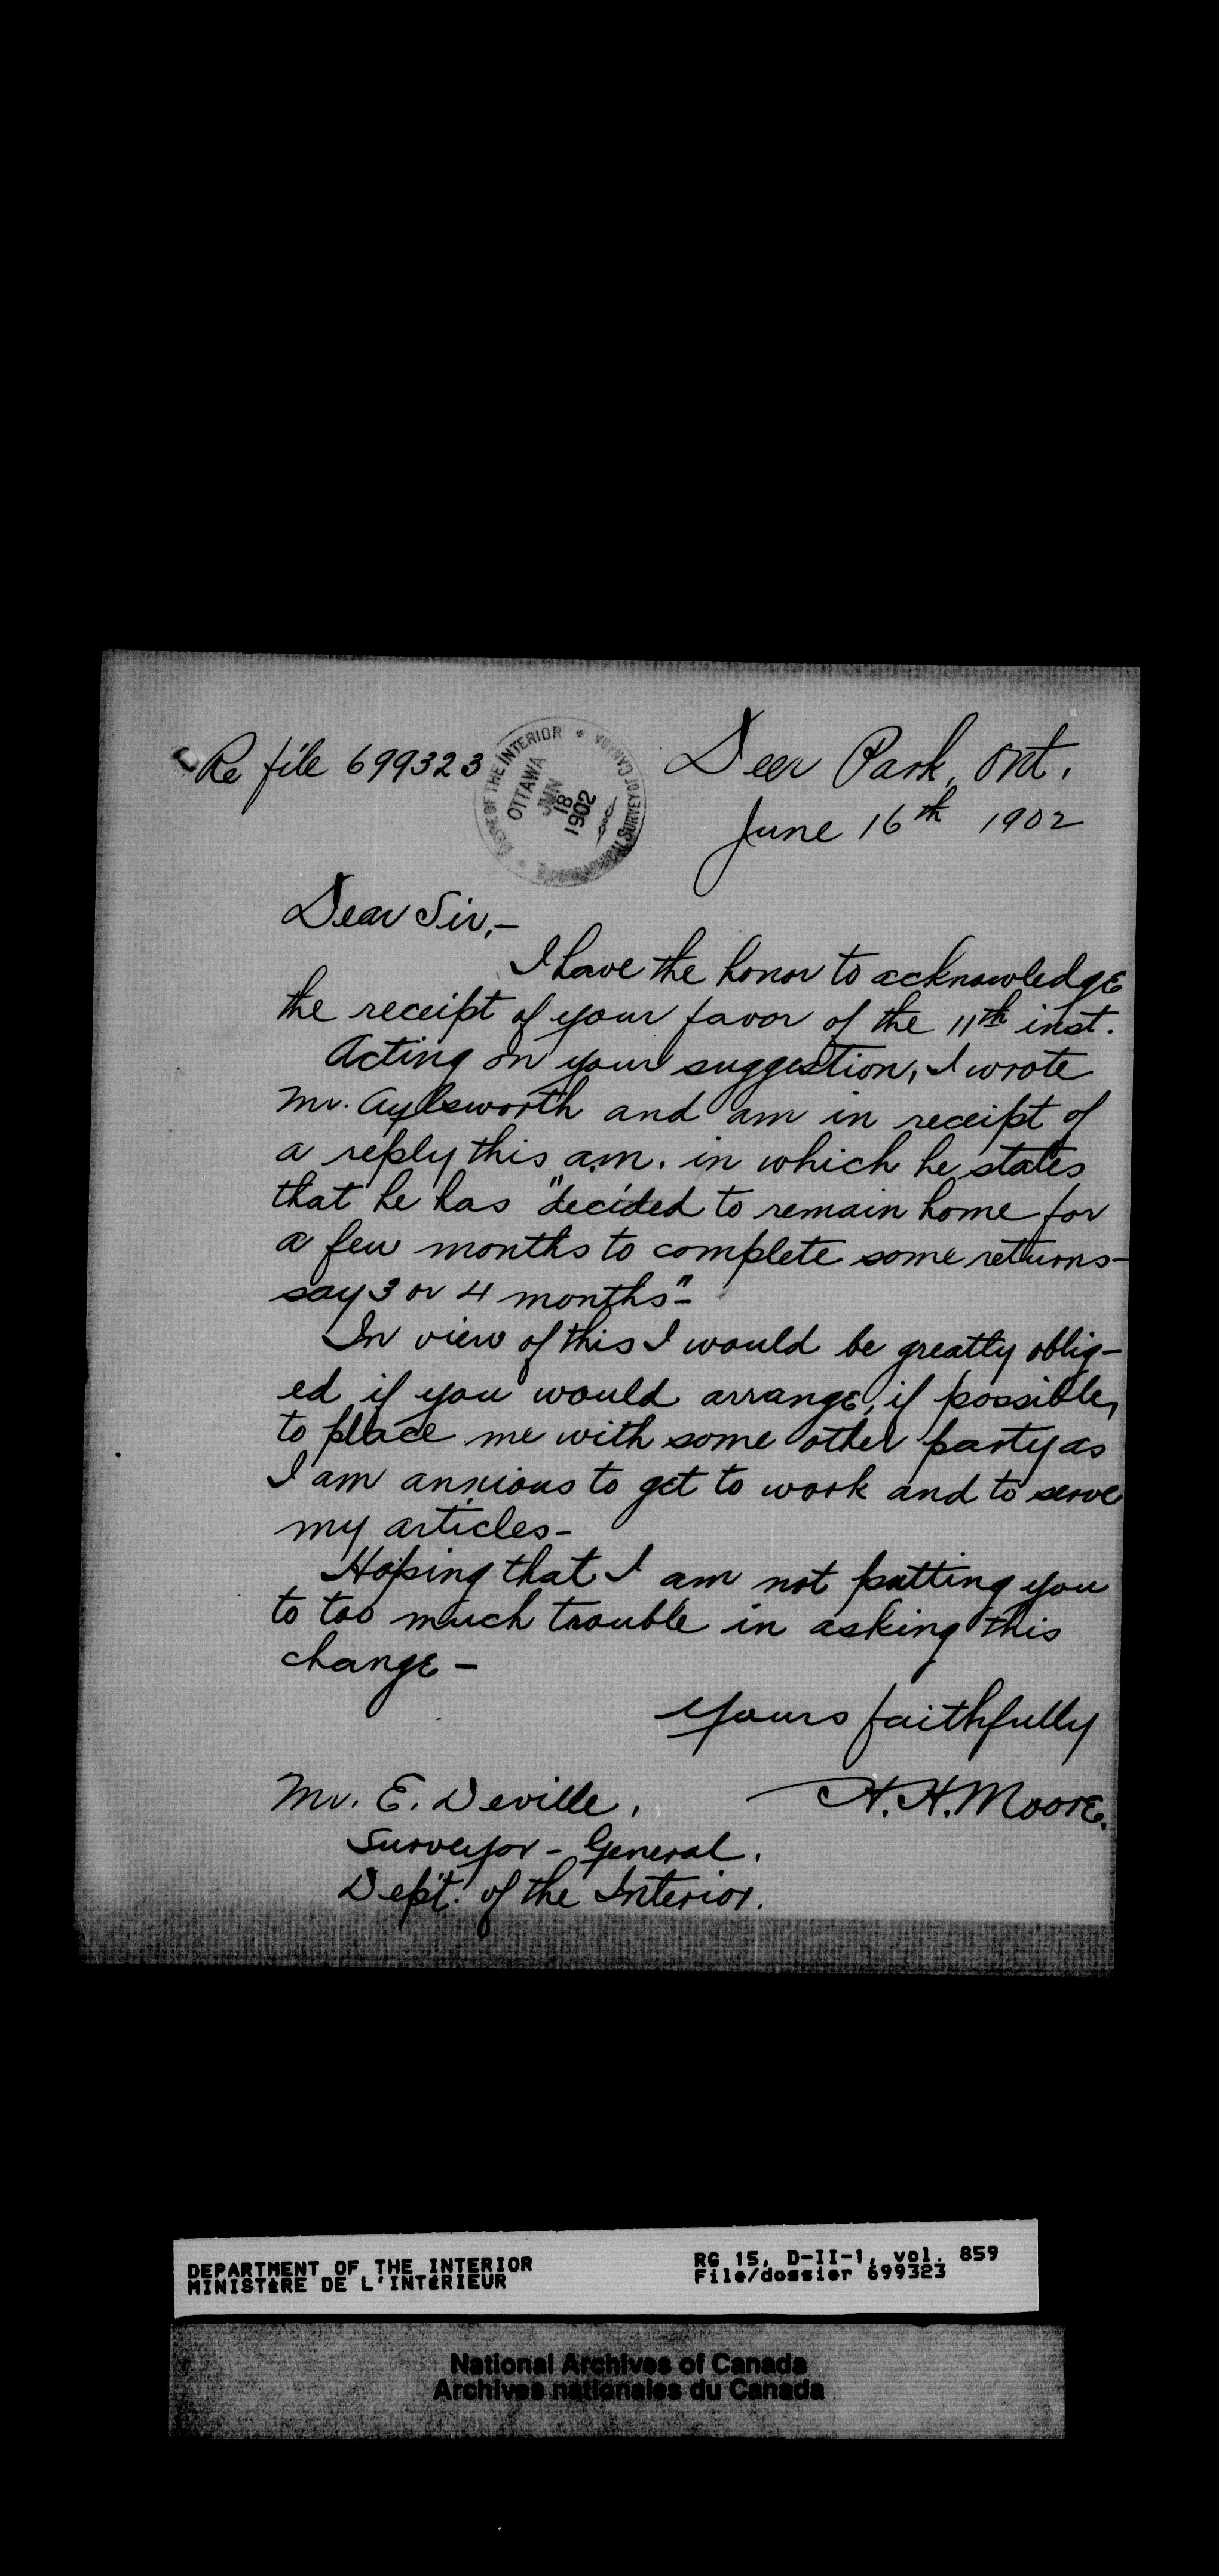 Re file 699323
DEPT OF THE INTERIOR
OTTAWA
JUN
18
1902
TOPOGRAPHICAL SURVEY OF CANADA
Deer Park, Ont.
June 16th 1902
Dear Sir,—
I have the honor to acknowledge
the receipt of your favor of the 11th inst.
Acting on your suggestion, I wrote
Mr. Aylsworth and am in receipt of
a reply this a.m. in which he states
that he has "decided to remain home for
a few months to complete some returns—
say 3 or 4 months"—
In view of this I would be greatly oblig-
ed if you would arrange, if possible,
to place me with some other party as
I am anxious to get to work and to serve
my articles—
Hoping that I am not putting you
to too much trouble in asking this
change—
Yours faithfully
H. H. Moore.
Mr. E. Deville,
Surveyor-General.
Dep't. of the Interior.
DEPARTMENT OF THE INTERIOR
MINISTÈRE DE L'INTÉRIEUR
RG 15, D-II-1, vol. 859
File/dossier 699323
National Archives of Canada
Archives nationales du Canada